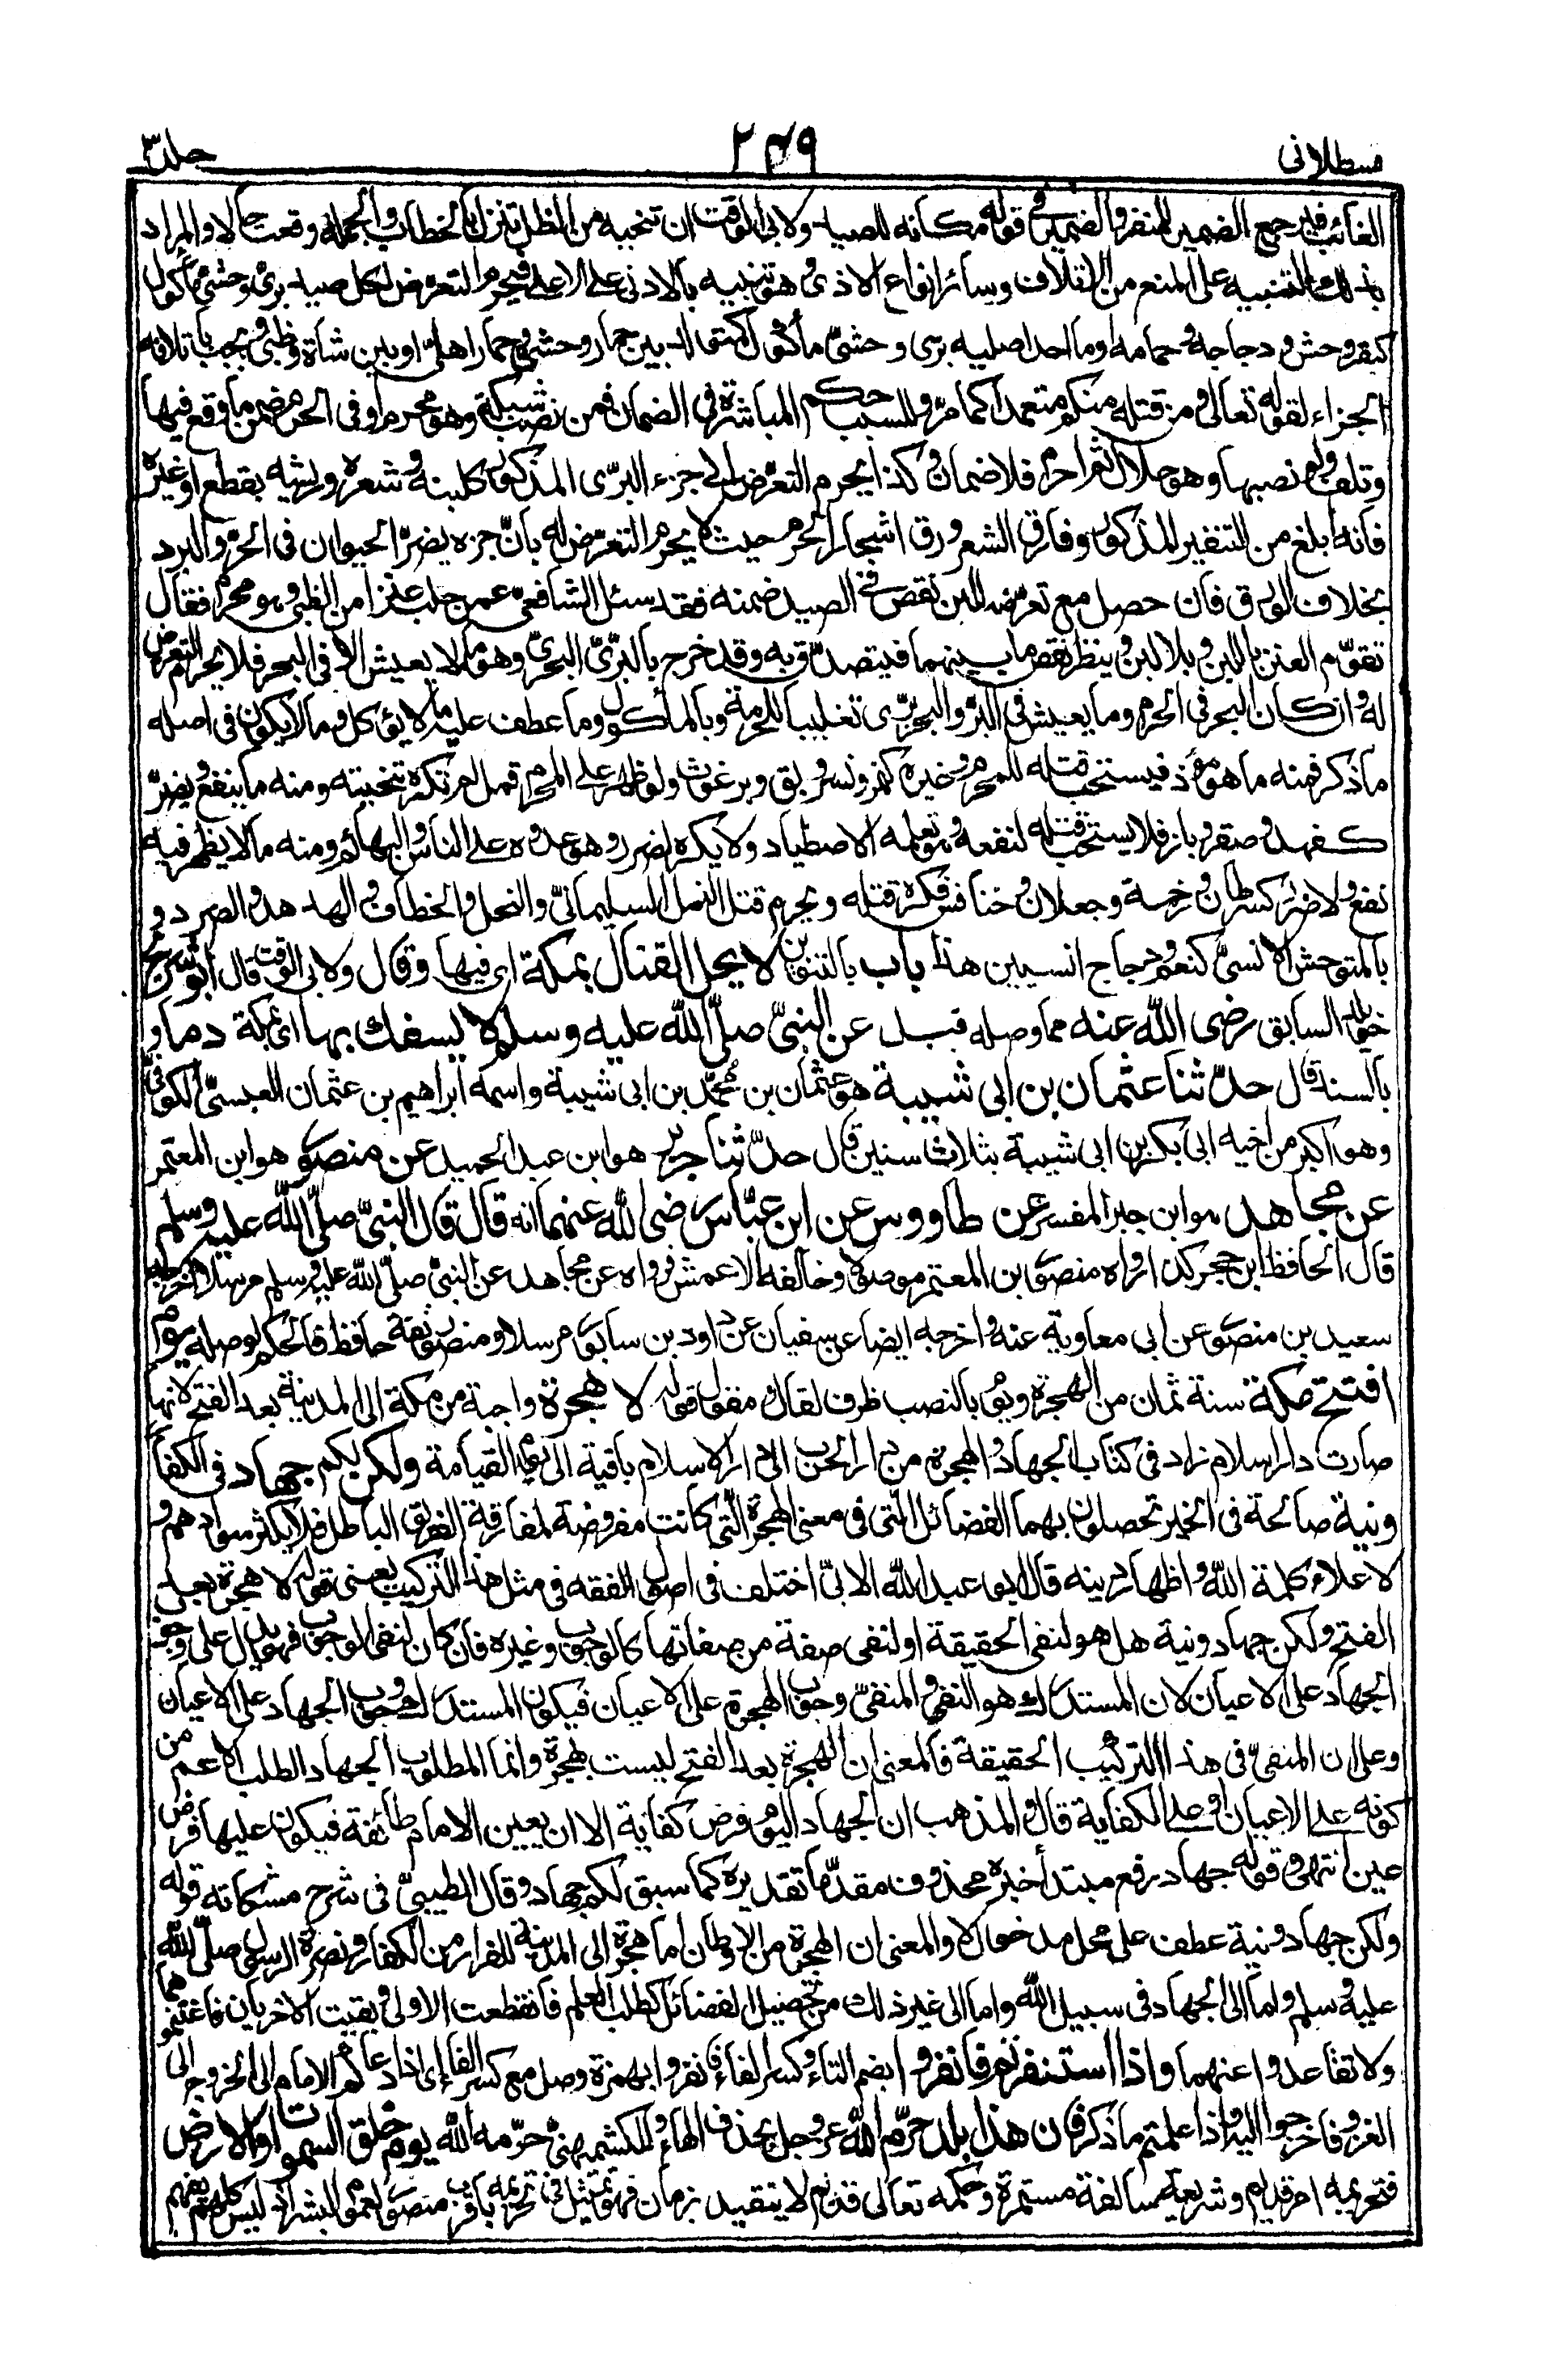 قسطلانی
۲۴۹
جلد۳
الغائب فيرجع الضمير للمنفر والضمير فى قوله مكانه للصيد ولابى الوقت ان تنحيه من الظل تنزل بالخطاب والجملة وقعت حالا والمراد
بذلك التنبيه على المنع من الاتلاف وسائر انواع الاذى وهو تنبيه بالادنى على الاعلى فيحرم التعرض لكل صيد برى وحشى مأكول
كبقر وحش ودجاجة وحمامة او ما احد اصليه برى وحشىّ مأكول كمتولد بين حمار وحشى وحمار اهلى او بين شاة وظبى ويجب باتلافه
الجزاء لقوله تعالى ومن قتله منكم متعمدا كما مر وللسبب حكم المباشرة فى الضمان فمن نصب شبكة وهو محرم او فى الحرم ضمن ما وقع فيها
وتلف ولو نصبها وهو حلال ثم احرم فلا ضمان وكذا يحرم التعرض الى جزء البرّى المذكور كلبنه وشعره وريشه بقطع او غيره
فانه ابلغ من التنفير المذكور وفارق الشعر ورق اشجار الحرم حيث لا يحرم التعرض له بانّ جزه يضرّ الحيوان فى الحرّ والبرد
بخلاف الورق فان حصل مع تعرضه للبن نقص فى الصيد ضمنه فقد سئل الشافعى عمن حلب عنزا من الظبى وهو محرم فقال
تقوّم العنز باللبن وبلا لبن وينظر نقص ما بينهما فيتصدق به وقد خرج بالبرّىّ البحرىّ وهو ما لا يعيش الا فى البحر فلا يحرم التعرض
له وان كان البحر فى الحرم وما يعيش فى البرّ والبحر برّى تغليبا للحرمة وبالمأكول وما عطف عليه ما لا يؤكل وما لا يكون فى اصله
ما ذكر فمنه ما هو مؤذ فيستحب قتله للمحرم وغيره كنمر ونسر وبق وبرغوث ولو ظهر على المحرم قمل لم تكره تنحيته ومنه ما ينفع ويضرّ
كفهد وصقر وباز فلا يستحب قتله لنفعه وهو تعلمه الاصطياد ولا يكره لضرره وهو عدوه على الناس والبهائم ومنه ما لا يظهر فيه
نفع ولا ضرر كسرطان ورخمة وجعلان وخنافس فيكره قتله ويحرم قتل النمل السليمانىّ والنحل والخطاف والهدهد والصرد و
بالمتوحش الانسىّ كنعم ودجاج انسيين هذا باب بالتنوين لا يحل القتال بمكة اى فيها وقال ولابى الوقت قال ابو شريح
خويلد السابق رضى الله عنه مما وصله قبل عن النبىّ صلّى الله عليه وسلم لا يسفك بها اى بمكة دما و
بالسند قال حدّثنا عثمان بن ابى شيبة هو عثمان بن محمّد بن ابى شيبة واسمه ابراهيم بن عثمان العبسىّ الكوفىّ
وهو اكبر من اخيه ابى بكر بن ابى شيبة بثلاث سنين قال حدّثنا جرير هو ابن عبد الحميد عن منصور هو ابن المعتمر
عن مجاهد هو ابن جبر المفسر عن طاووس عن ابن عبّاس رضى الله عنهما انه قال قال النبىّ صلّى الله عليه وسلم
قال الحافظ ابن حجر كذا رواه منصور بن المعتمر موصولا وخالفه الاعمش فرواه عن مجاهد عن النبىّ صلّى الله عليه وسلم مرسلا اخرجه
سعيد بن منصور عن ابى معاوية عنه واخرجه ايضا عن سفيان عن داود بن سابور مرسلا ومنصور ثقة حافظ فالحكم لوصله يوم
افتتح مكة سنة ثمان من الهجرة ويوم بالنصب ظرف لقال ومقول قوله لا هجرة واجبة من مكة الى المدينة بعد الفتح لانها
صارت دار اسلام زاد فى كتاب الجهاد والهجرة من دار الحرب الى دار الاسلام باقية الى يوم القيامة ولكن لكم جهاد فى الكفار
ونية صالحة فى الخير تحصلون بهما الفضائل التى فى معنى الهجرة التى كانت مفروضة لمفارقة الفريق الباطل فلا يكثر سوادهم و
لاعلاء كلمة الله واظهار دينه قال ابو عبد الله الابىّ اختلف فى اصول الفقه فى مثل هذا التركيب يعنى قوله لا هجرة بعد
الفتح ولكن جهاد ونية هل هو لنفى الحقيقة او لنفى صفة من صفاتها كالوجوب وغيره فان كان لنفى الوجوب فهو يدل على وجوب
الجهاد على الاعيان لان المستدرك هو النفى والمنفىّ وجوب الهجرة على الاعيان فيكون المستدرك وجوب الجهاد على الاعيان
وعلى ان المنفىّ فى هذا التركيب الحقيقة فالمعنى ان الهجرة بعد الفتح ليست بهجرة وانما المطلوب الجهاد الطلب الاعم من
كونه على الاعيان او على الكفاية قال والمذهب ان الجهاد اليوم فرض كفاية الا ان يعين الامام طائفة فيكون عليها فرض
عين انتهى وقوله جهاد رفع مبتدأ خبره محذوف مقدّما تقديره كما سبق لكم جهاد وقال الطيبىّ فى شرح مشكاته قوله
ولكن جهاد ونية عطف على محل مدخول لا والمعنى ان الهجرة من الاوطان اما هجرة الى المدينة للفرار من الكفار ونصرة الرسول صلّى الله
عليه وسلم واما الى الجهاد فى سبيل الله واما الى غير ذلك من تحصيل الفضائل كطلب العلم فانقطعت الاولى وبقيت الاخريان فاغتنموهما
ولا تقاعدوا عنهما واذا استنفرتم فانفروا بضم التاء وكسر الفاء فانفروا بهمزة وصل مع كسر الفاء اى اذا دعاكم الامام الى الخروج الى
الغزو فاخرجوا اليه واذا علمتم ما ذكر فان هذا بلد حرّم الله عز وجل بحذف الهاء وللكشميهنى حرّمه الله يوم خلق السموات والارض
فتحريمه امر قديم وشريعة سالفة مستمرة وحكمه تعالى قديم لا يتقيد بزمان فهو تمثيل فى تحريمه باقرب متصور لعموم البشر اذ ليس كلهم يفهم